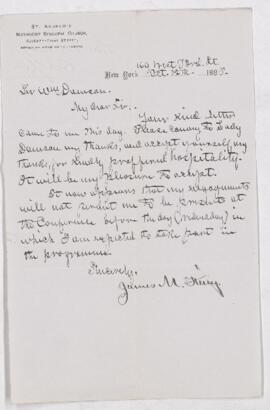 ST. ANDREW'S
METHODIST EPISCOPAL CHURCH,
160 West 78th St.
New York, Oct. 188
Sir Wm Dawson.
My dear Sir,
Your kind letter
came to me this day. Please convey to Lady
Dawson my thanks, and accept yourself my
thanks, for kindly proffered hospitality.
It will be my pleasure to accept.
It now appears that my engagements
will not permit me to be present at
the Conference before the day (Wednesday) in
which I am expected to take part in
the programme.
Sincerely,
James M. King.